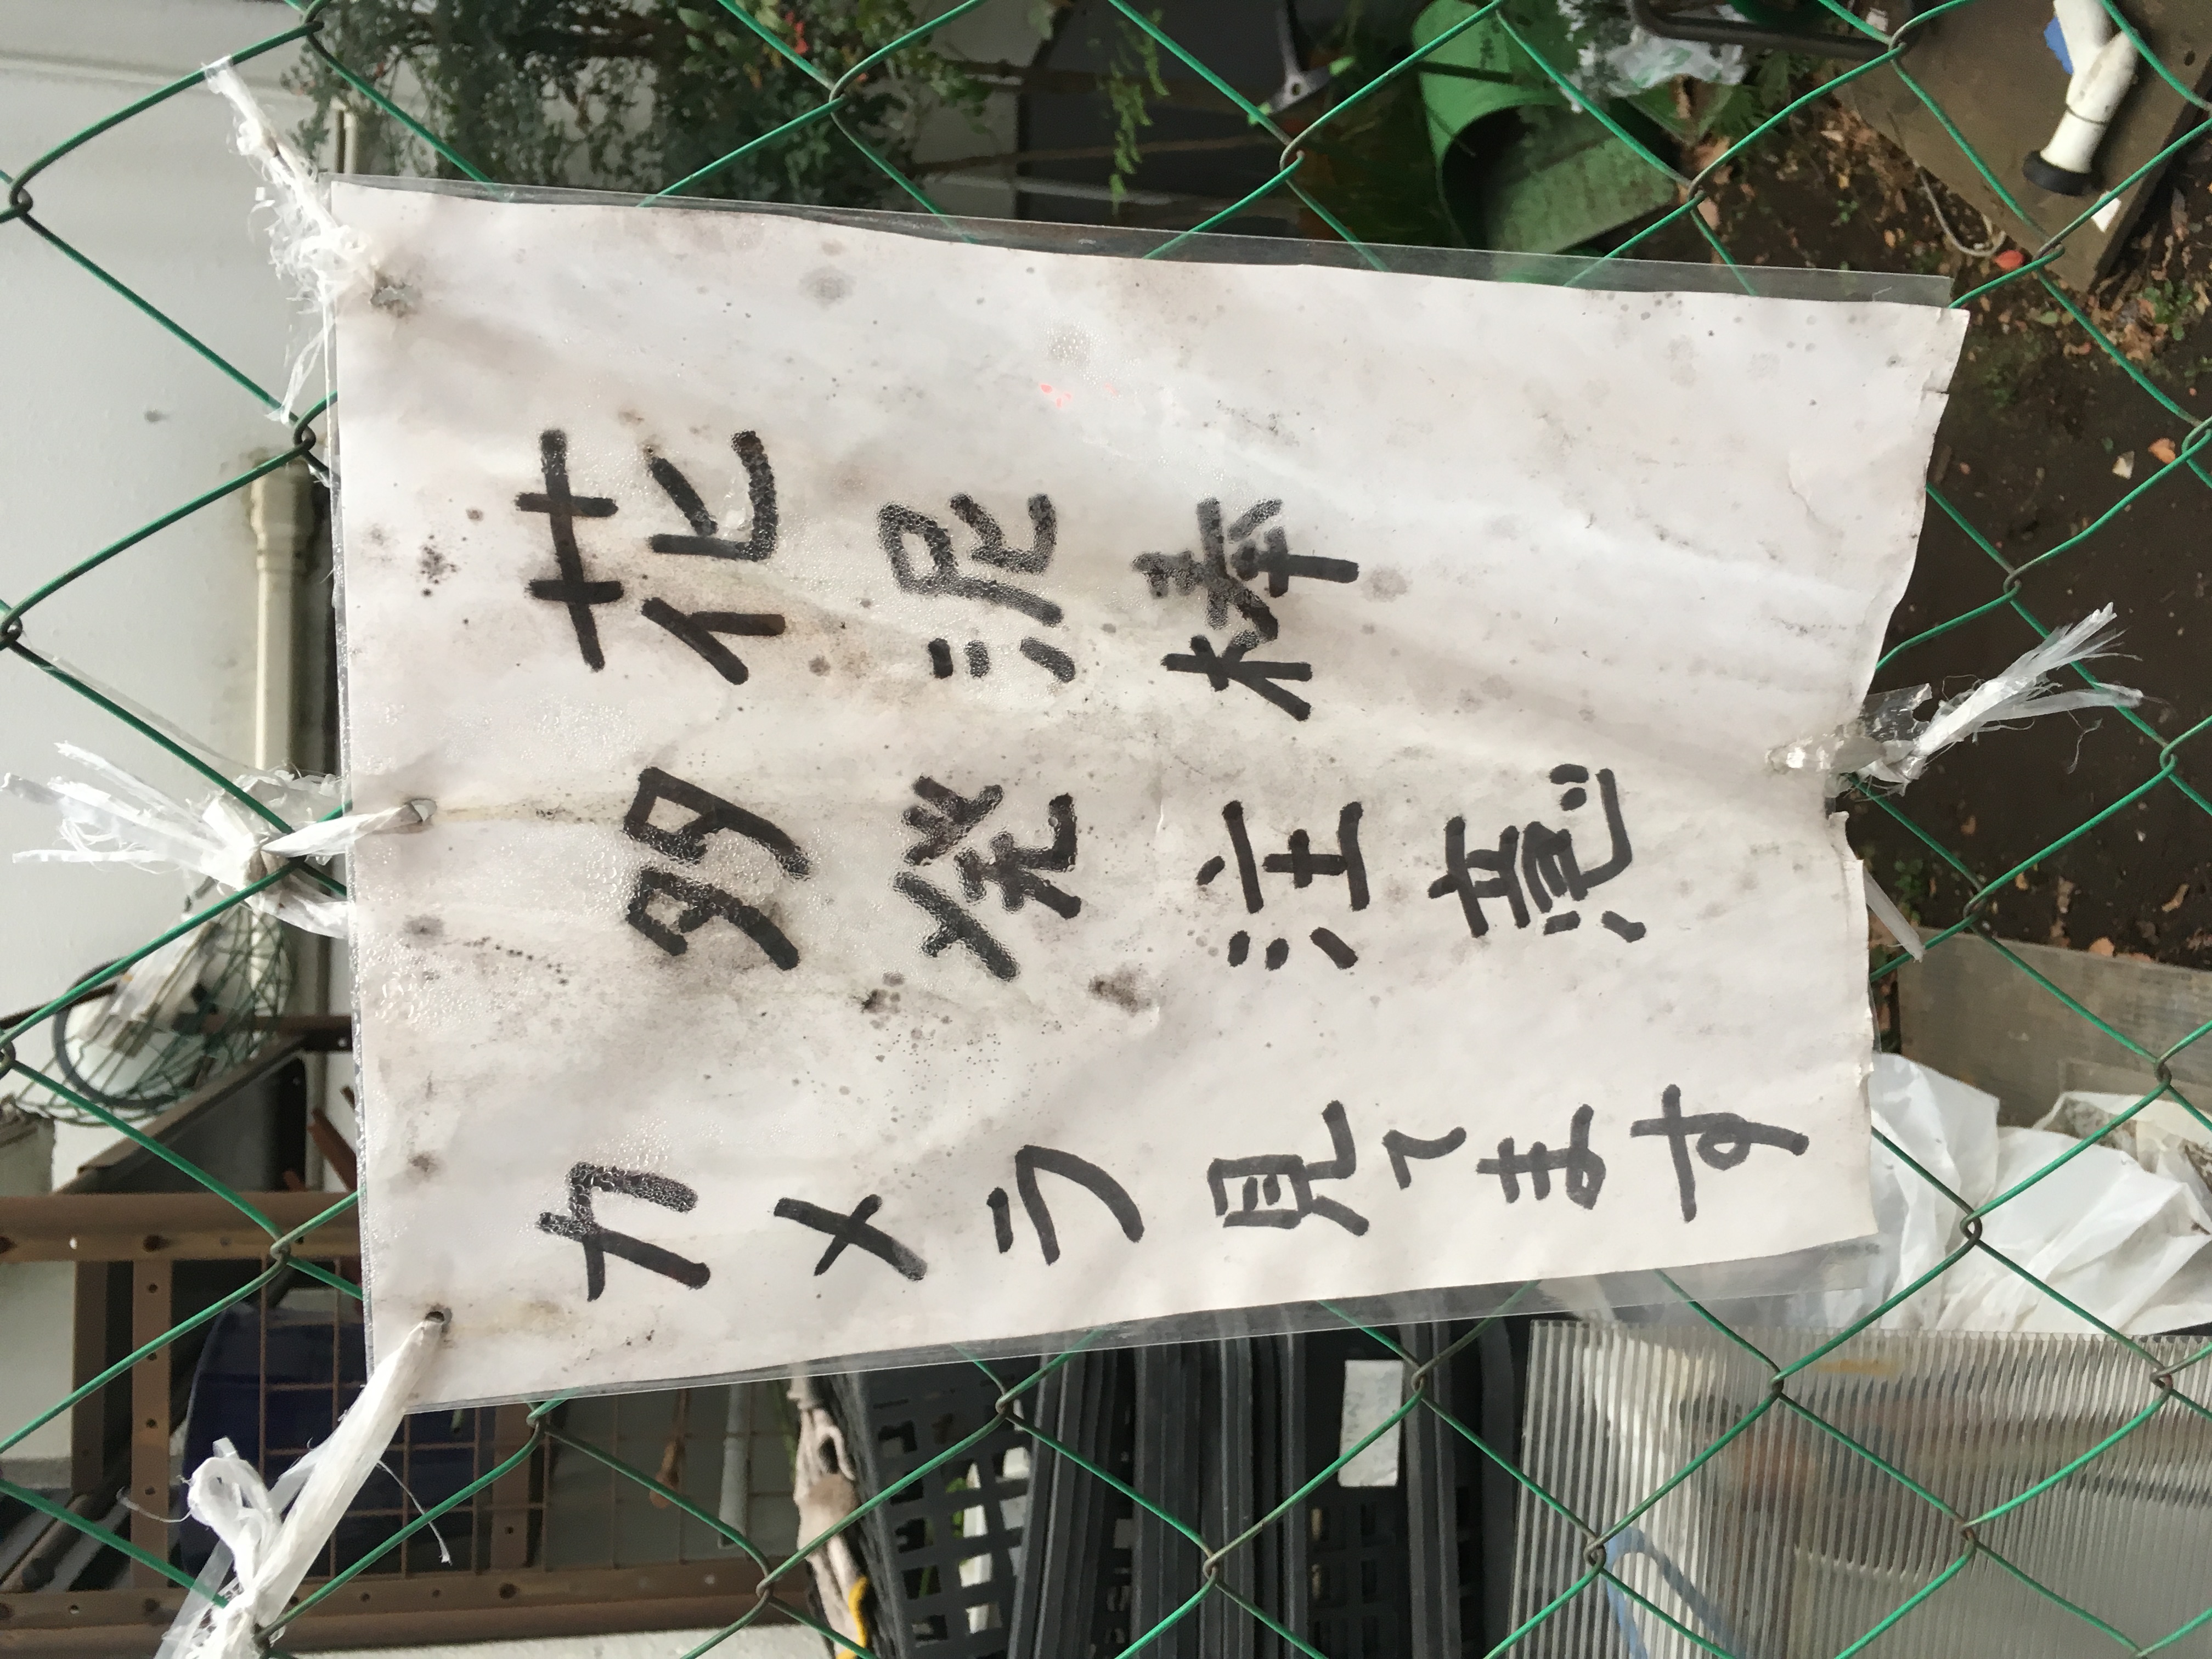 花泥棒
多発注意
カメラ見てます